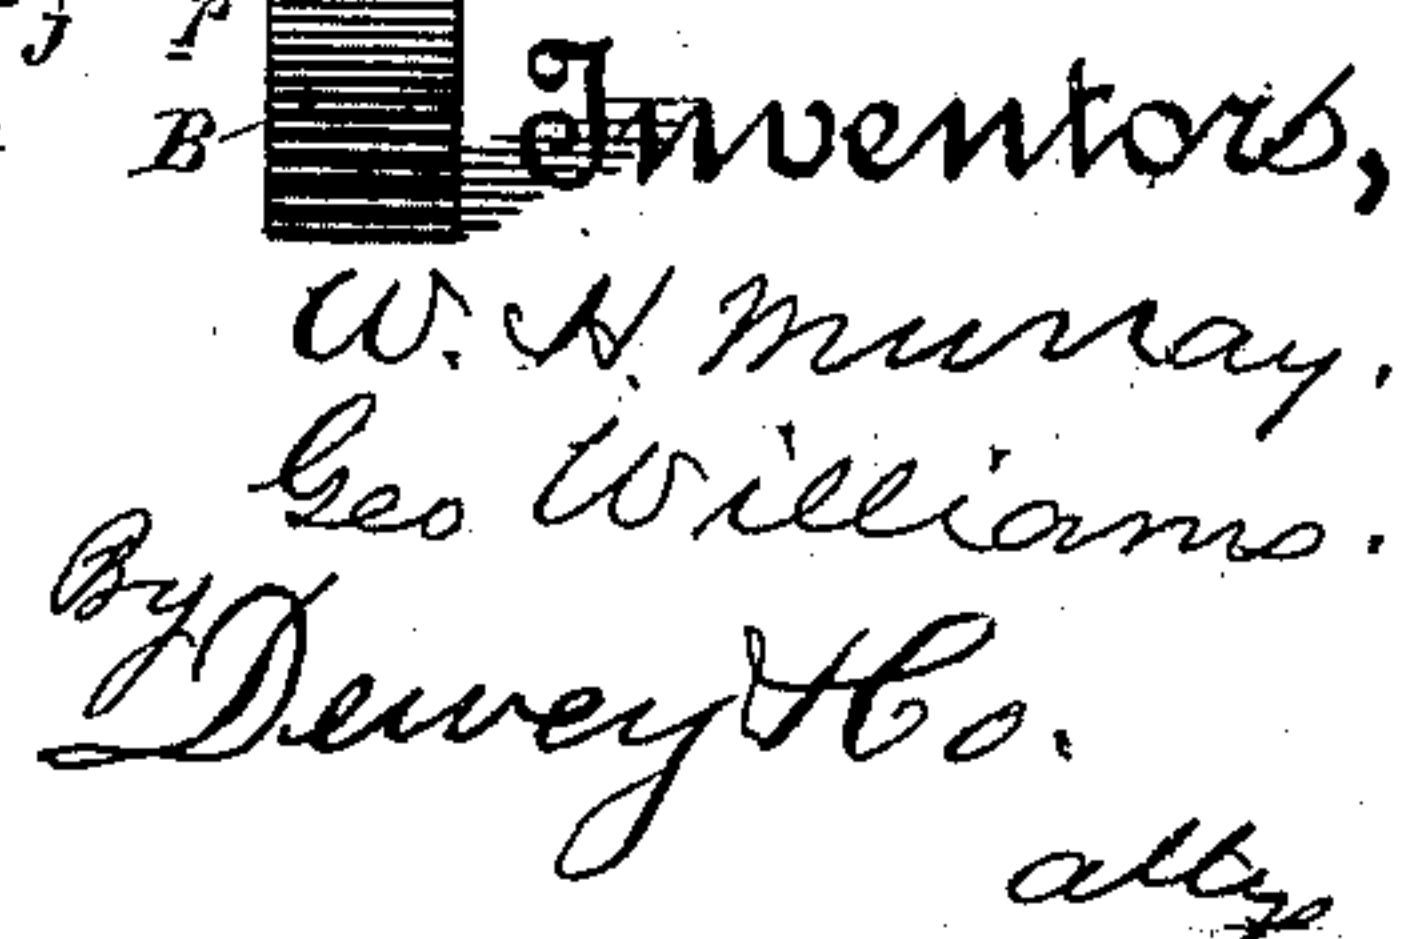 j P
B
Inventors,
W. H. Murray.
Geo Williams.
By
Dewey & Co.
attys